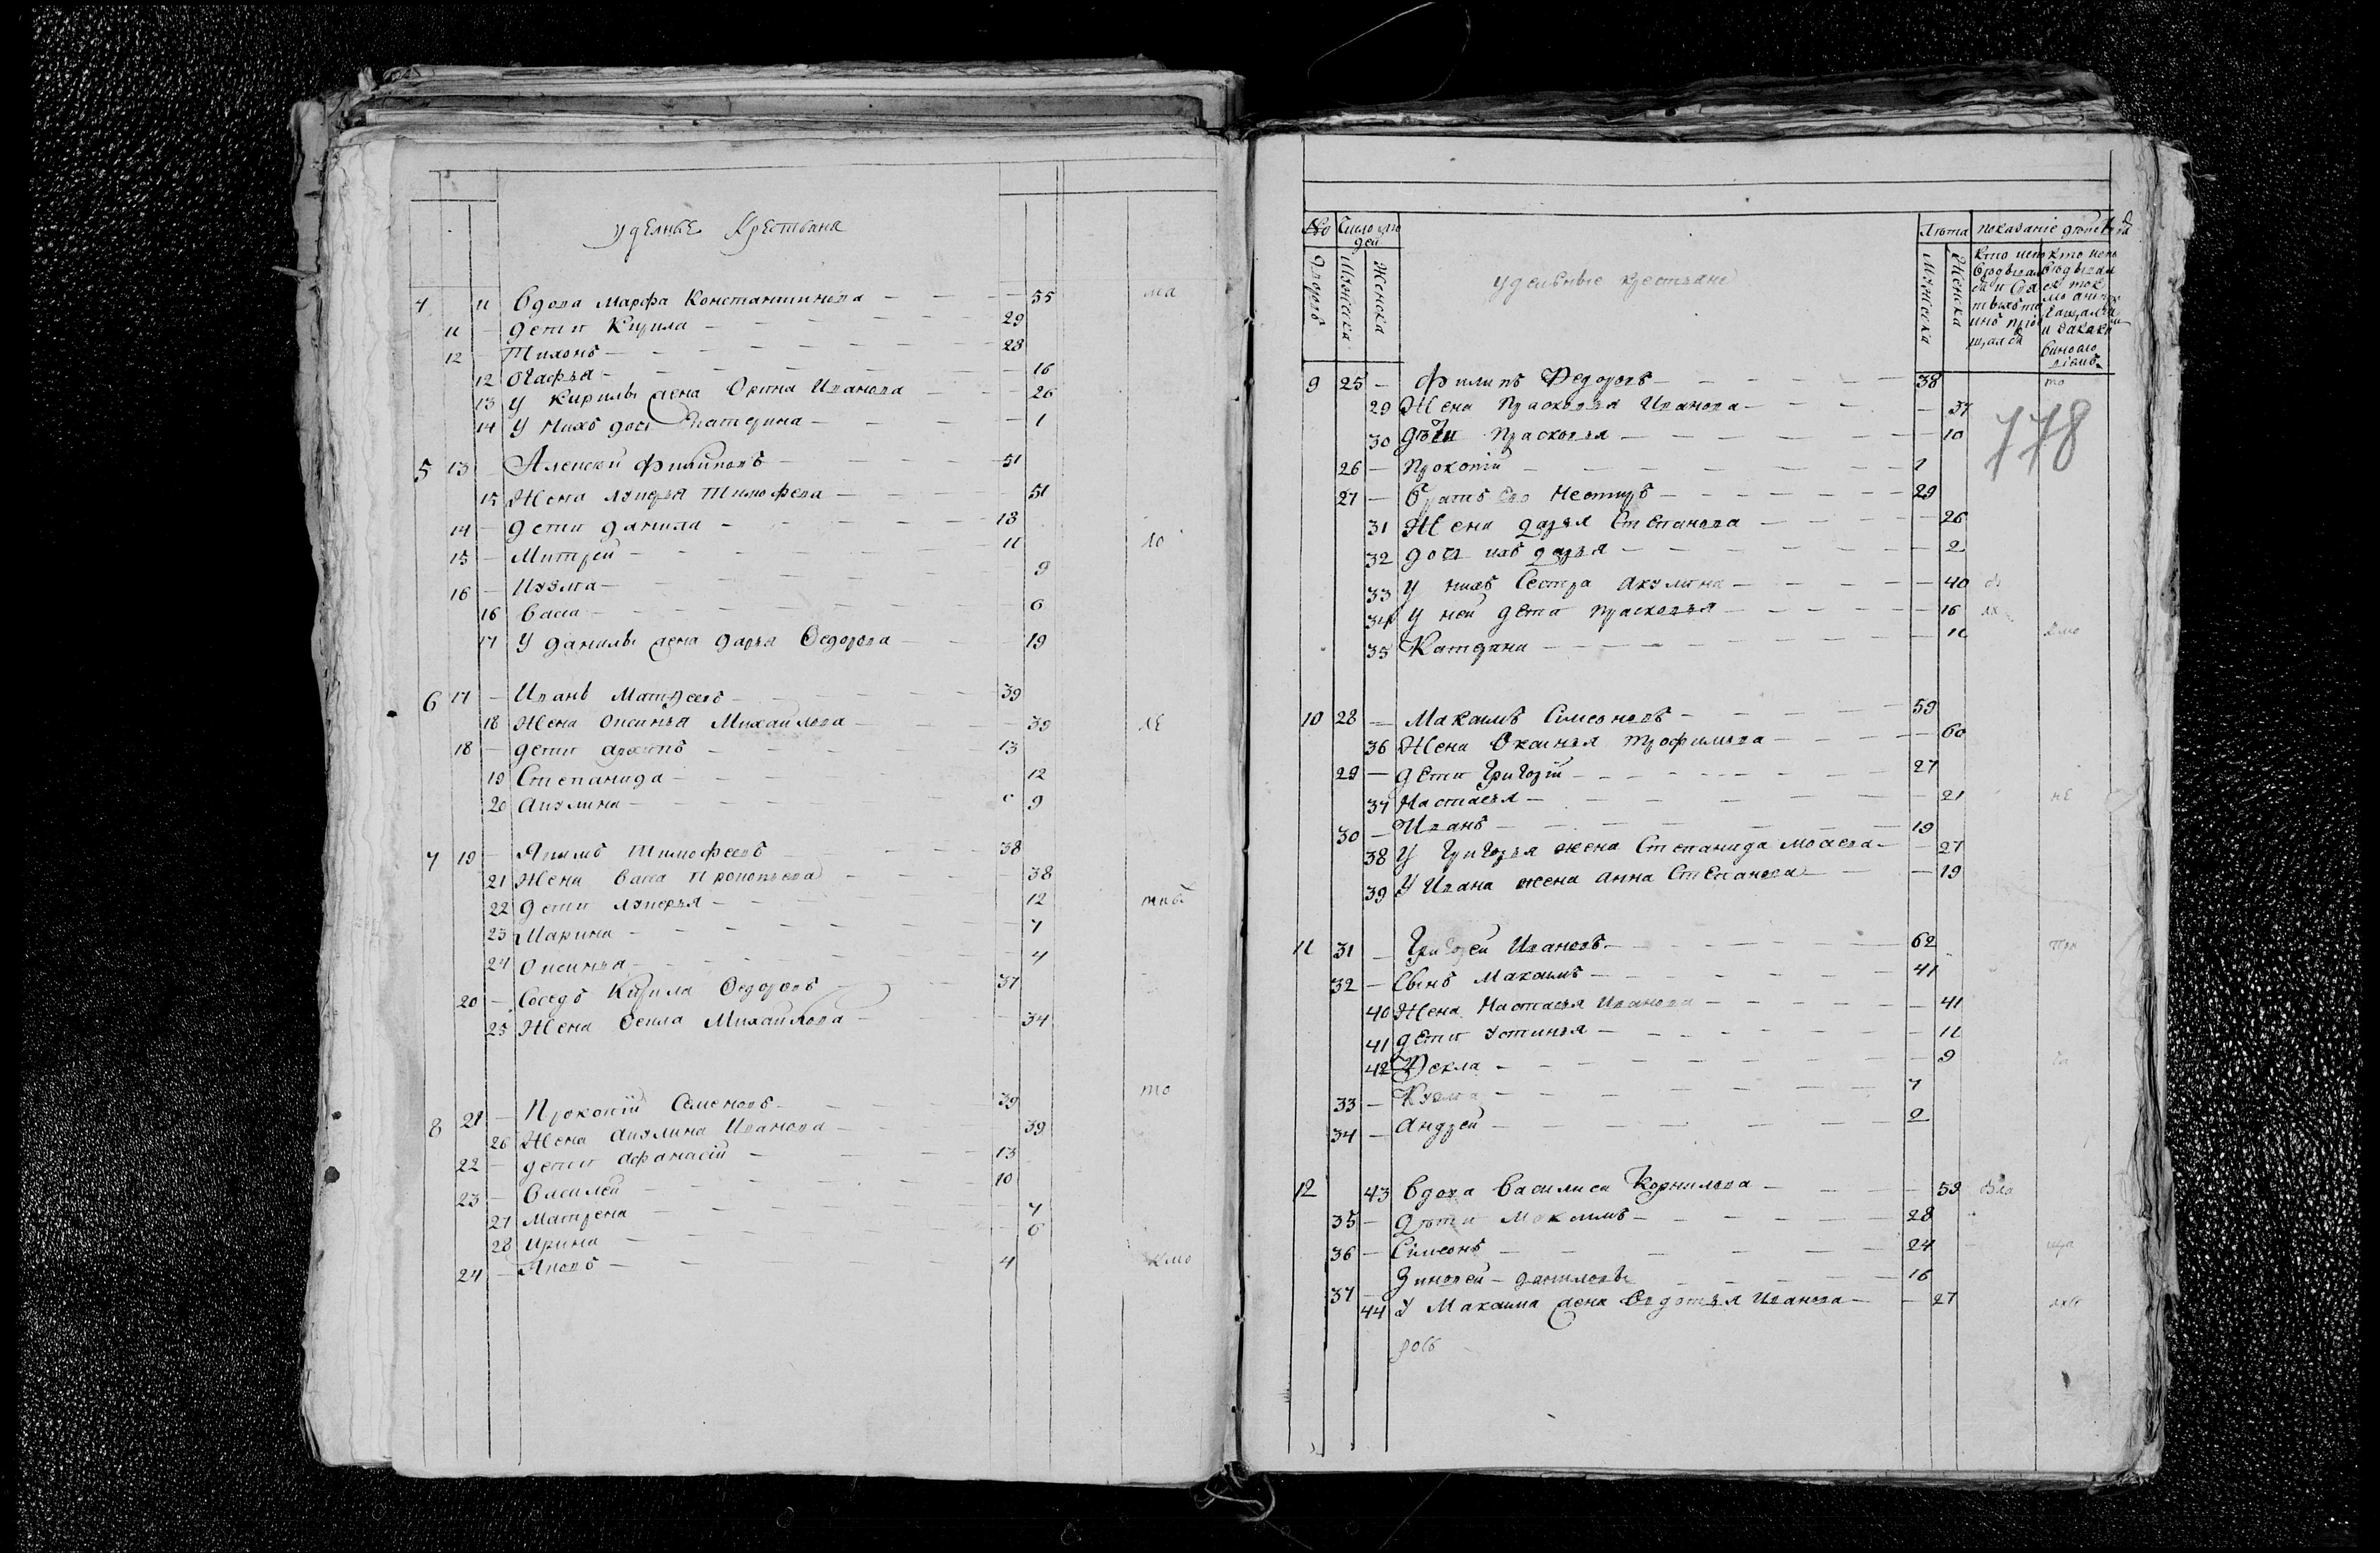 уделные Крестьяна
4 11 Вдова Марфа Константинова — 55
11 — дети Кирила — 29
12 — Тихонъ — 23
12 Огафья — 16
13 У Кирилы жена Орина Иванова — 26
14 У нихъ дочь Екатерина — 1
5 13 Алексей Филиповъ — 51
15 Жена Лукерья Тимофева — 51
14 — дети данила — 18
15 — Митрей — 11
16 — Кузма — 9
16 Васа — 6
17 У данилы жена дарья Федорова — 19
6 17 — Иванъ Матфеевъ — 39
18 Жена Оксинья Михаилова — 39
18 — дети архипъ — 13
19 Степанида — 12
20 акулина — 9
7 19 — Якимъ Тимофеевъ — 38
21 Жена васа Прокопьева — 38
22 дети лукерья — 12
23 Марина — 7
24 Оксинья — 4
20 — Соседъ Кирила Федоровъ — 37
25 Жена Фекла Михаилова — 34
8 21 — Прокопій Семеновъ — 39
26 Жена акулина Иванова — 39
22 — дети афанасій — 13
23 — Василей — 10
27 Матрена — 7
28 ирина — 6
24 — Яковъ — 4
№ Число лю дей Лета показаніе
дворовъ Мужеска Женска
удельные крестьане
Мужеска Женска
178
9 25 — Филипъ Федоровъ — 38
29 Жена Прасковья Иванова — 37
30 дѣти Прасковья — 10
26 — Прокопій — 1
27 — братъ Ево Нестиръ — 29
31 Жена дарья Степанова — 26
32 дочь ихъ дарья — 2
33 У нихъ Сестра акулина — 40
34 У ней дета прасковья — 16
35 Катерина — 11
10 28 — Максимъ Симеоновъ — 59
36 Жена Оксинья трофимова — 60
29 — дети Григорій — 27
37 Настасья — 21
30 — Иванъ — 19
38 У Григорья жена Степанида мосева — 27
39 У Ивана жена анна Степанова — 19
11 31 — Григорей Ивановъ — 62
32 — Сынъ Максимъ — 41
40 Жена Настасья Иванова — 41
41 дети Устинья — 11
42 Фекла — 9
33 — Кузма — 7
34 — андрей — 2
12 43 Вдова василиса Корнилова — 59
35 — дѣти Максимъ — 28
36 — Симеонъ — 24
37 — Зиновей — даниловы — 16
44 У Максима жена Овдотья Иванова — 27